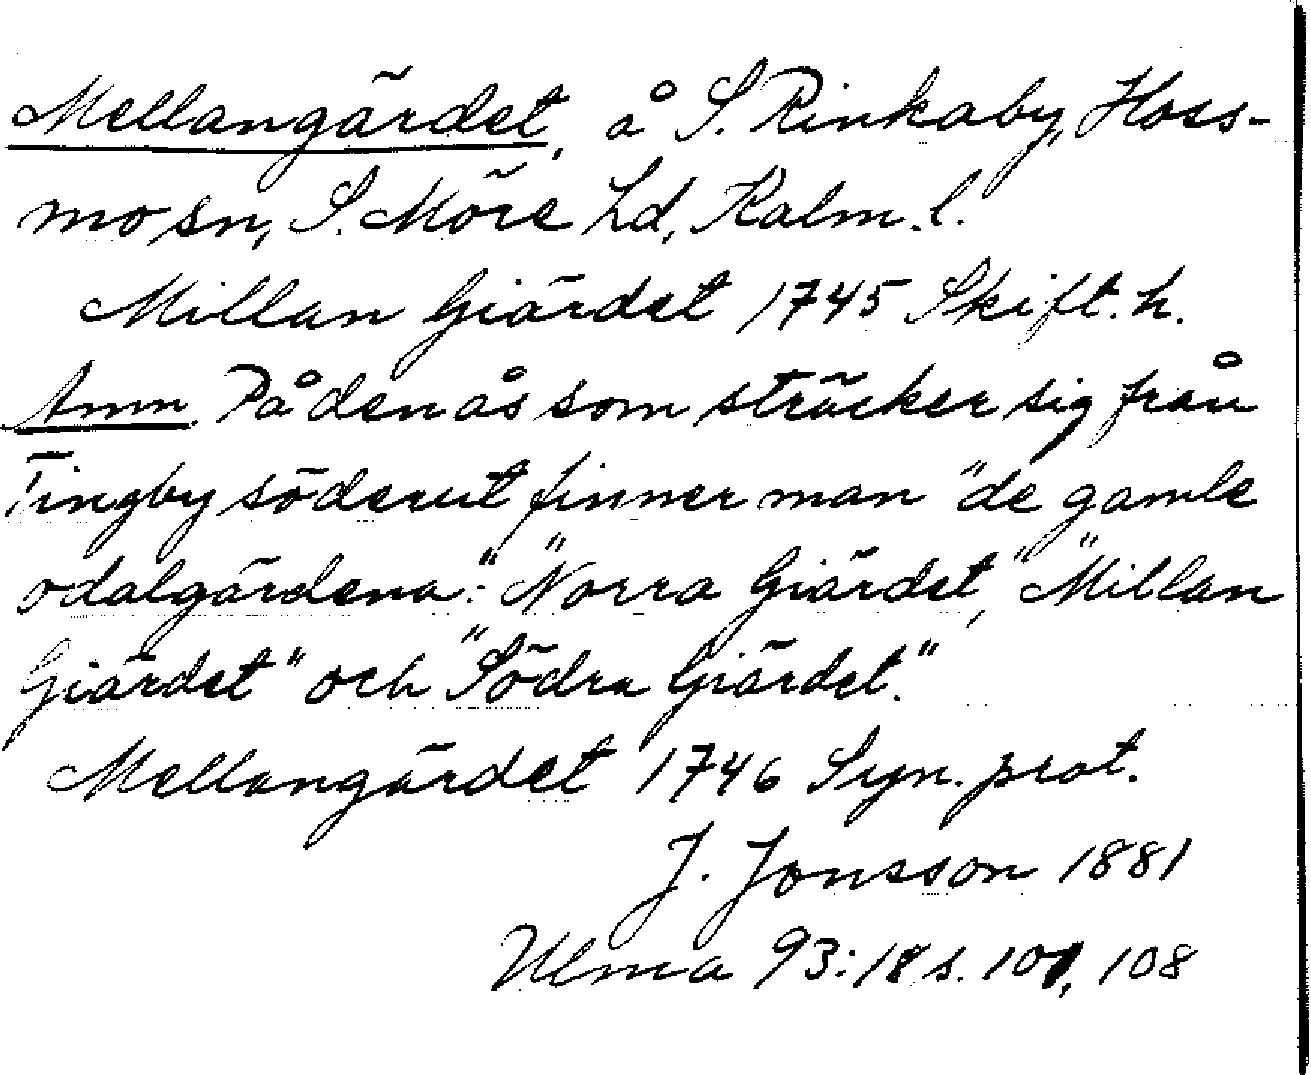 Mellangärdet, å S. Rinkaby, Hoss-
mo sn, S. Möre hd, Kalm. l.
Millan Giärdet 1745 Skift. h.
Anm. På den ås som sträcker sig från
Tingby söderut finner man "de gamle
odalgärdena": "Norra Giärdet", "Millan
Giärdet" och "Södra Giärdet."
Mellangärdet 1746 Syn. prot.
J. Jonsson 1881
Ulma 93:18 s. 107, 108